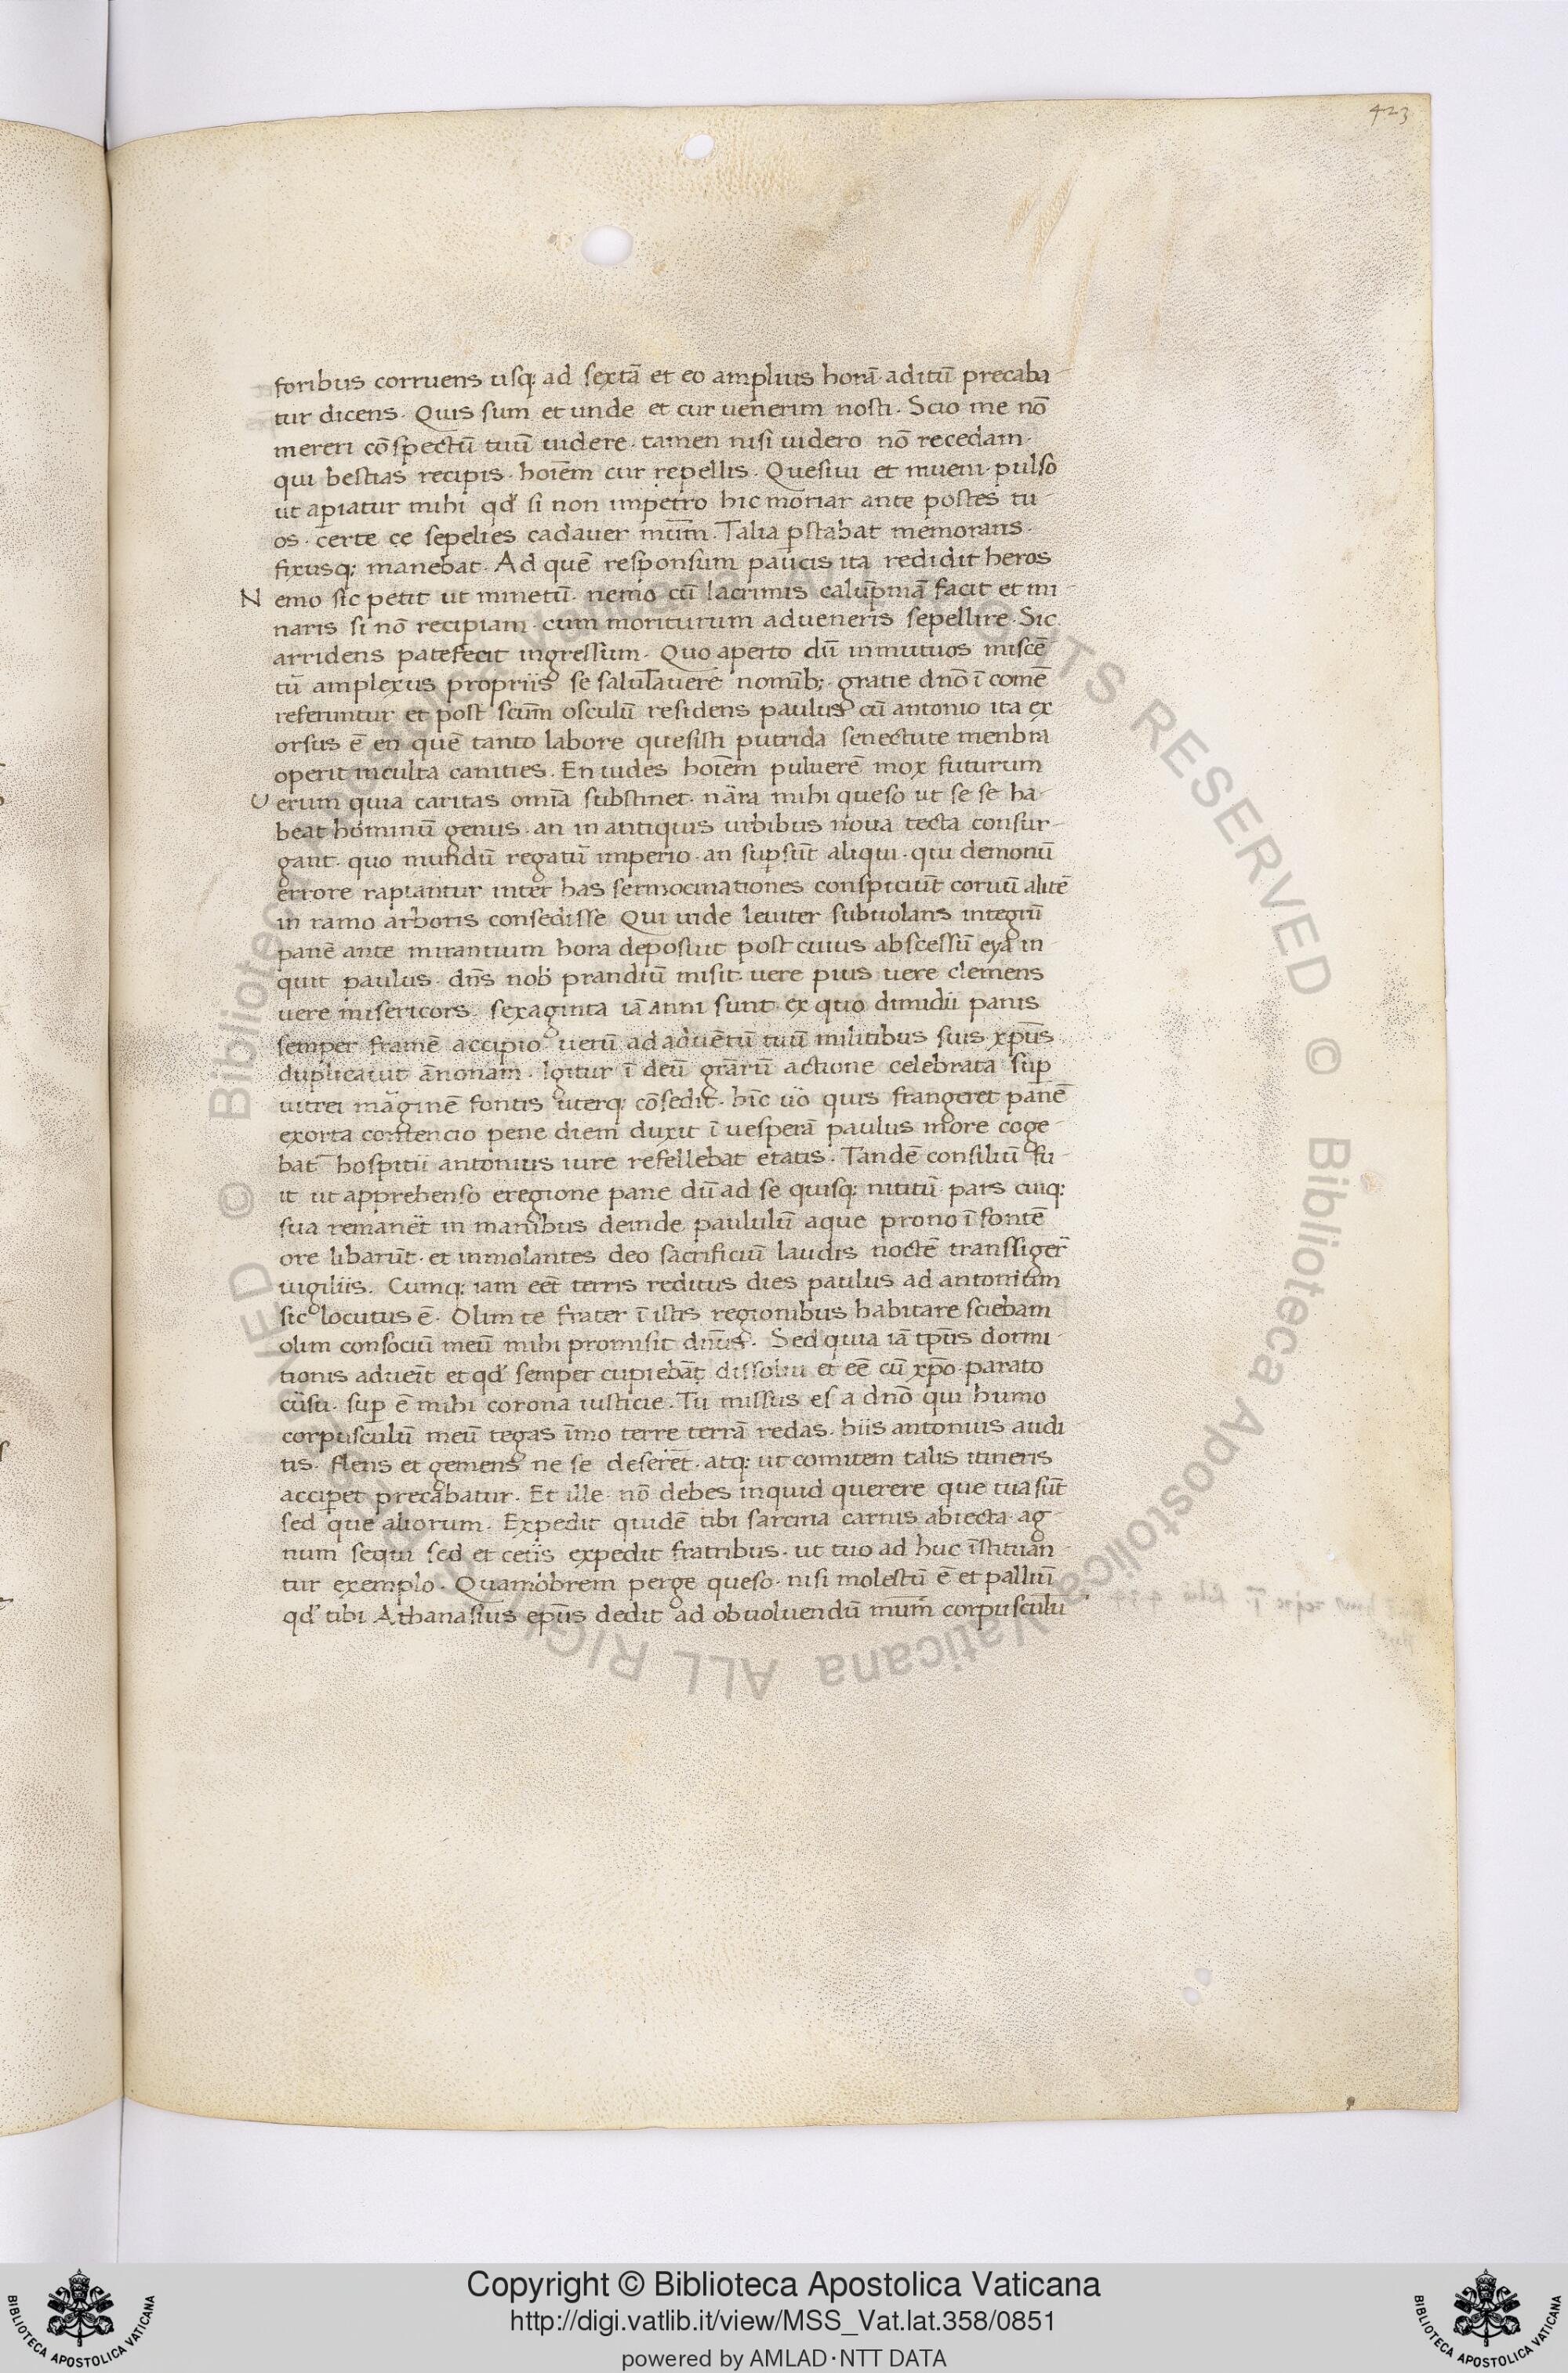 423
foribus corruens usq; ad sextā et eo amplius horā aditū precaba-
tur dicens. Quis sum et unde et cur uenerim nosti. Scio me nō
mereri cōspectū tuū uidere. tamen nisi uidero nō recedam.
qui bestias recipis. hoīem cur repellis. Quesiui et inueni. pulso
ut apiatur mihi qd' si non impetro hic moriar ante postes tu-
os. certe ce sepelies cadauer mūm. Talia pstabat memorans.
fixusq; manebat. Ad quē responsum paucis ita redidit heros
Nemo sic petit ut minetū. nemo cū lacrimis calūpniā facit et mi-
naris si nō recipiam. cum moriturum adueneris sepellire. Sic
arridens patefecit ingressum. Quo aperto dū inmutuos miscē-
tū amplexus propriis se salutauere nomīb; gratie dnō ī comē
referuntur et post scūm osculū residens paulus cū antonio ita ex
orsus ē en quē tanto labore quesisti putrida senectute menbra
operit inculta canities. En uides hoīem puluerē mox futurum
Uerum quia caritas omīa substinet. nāra mihi queso ut se se ha-
beat hominū genus. an in antiquis urbibus noua tecta consur-
gant. quo mundū regatū imperio. an supsūt aliqui. qui demonū
errore rapiantur inter has sermocinationes conspiciūt coruū alitē
in ramo arboris consedisse Qui uide leuiter subuolans integrū
panē ante mirantium hora deposuit post cuius abscessū eya in-
quit paulus. dn̄s nob' prandiū misit uere pius uere clemens
uere misericors. sexaginta iā anni sunt ex quo dimidii panis
semper framē accipio uerū ad aduētū tuū militibus suis xp̄us
duplicauit ānonam. Igitur ī deū grārū actione celebrata sup
uitrei māginē fontis uterq; cōsedit. hīc uo quis frangeret panē
exorta contencio pene diem duxit ī uesperā paulus more coge-
bat hospitii antonius iure refellebat etatis. Tandē consiliū fu-
it ut apprehenso eregione pane dū ad se quisq; nititū pars cuiq;
sua remanēt in manibus deinde paululū aque prono ī fontē
ore libarūt. et inmolantes deo sacrificiū laudis noctē transsiger̄
uigiliis. Cumq; iam eēt terris reditus dies paulus ad antonium
sic locutus ē. Olim te frater ī istis regionibus habitare sciebam
olim consociū meū mihi promisit dn̄us. Sed quia iā tp̄us dormi-
tionis adueīt et qd' semper cupiebāt dissolui et eē cū xp̄o. parato
cūsu. sup ē mihi corona iusticie. Tu missus es a dnō qui humo
corpusculū meū tegas īmo terre terrā redas. hiis antonius audi
tis. flens et gemens ne se deserēt. atq; ut comitem talis itineris
accipet precabatur. Et ille nō debes inquid querere que tua sūt
sed que aliorum. Expedit quidē tibi sarcina carnis abiecta ag-
num sequi sed et cetīs expedit fratribus. ut tuo ad huc īstituan-
tur exemplo. Quamobrem perge queso. nisi molestū ē et palliū
qd' tibi Athanasius ep̄us dedit ad obuoluendū mūm corpusculū
Copyright © Biblioteca Apostolica Vaticana
http://digi.vatlib.it/view/MSS_Vat.lat.358/0851
powered by AMLAD·NTT DATA
BIBLIOTECA APOSTOLICA VATICANA
BIBLIOTECA APOSTOLICA VATICANA
© Biblioteca Apostolica Vaticana ALL RIGHTS RESERVED
© Biblioteca Apostolica Vaticana ALL RIGHTS RESERVED